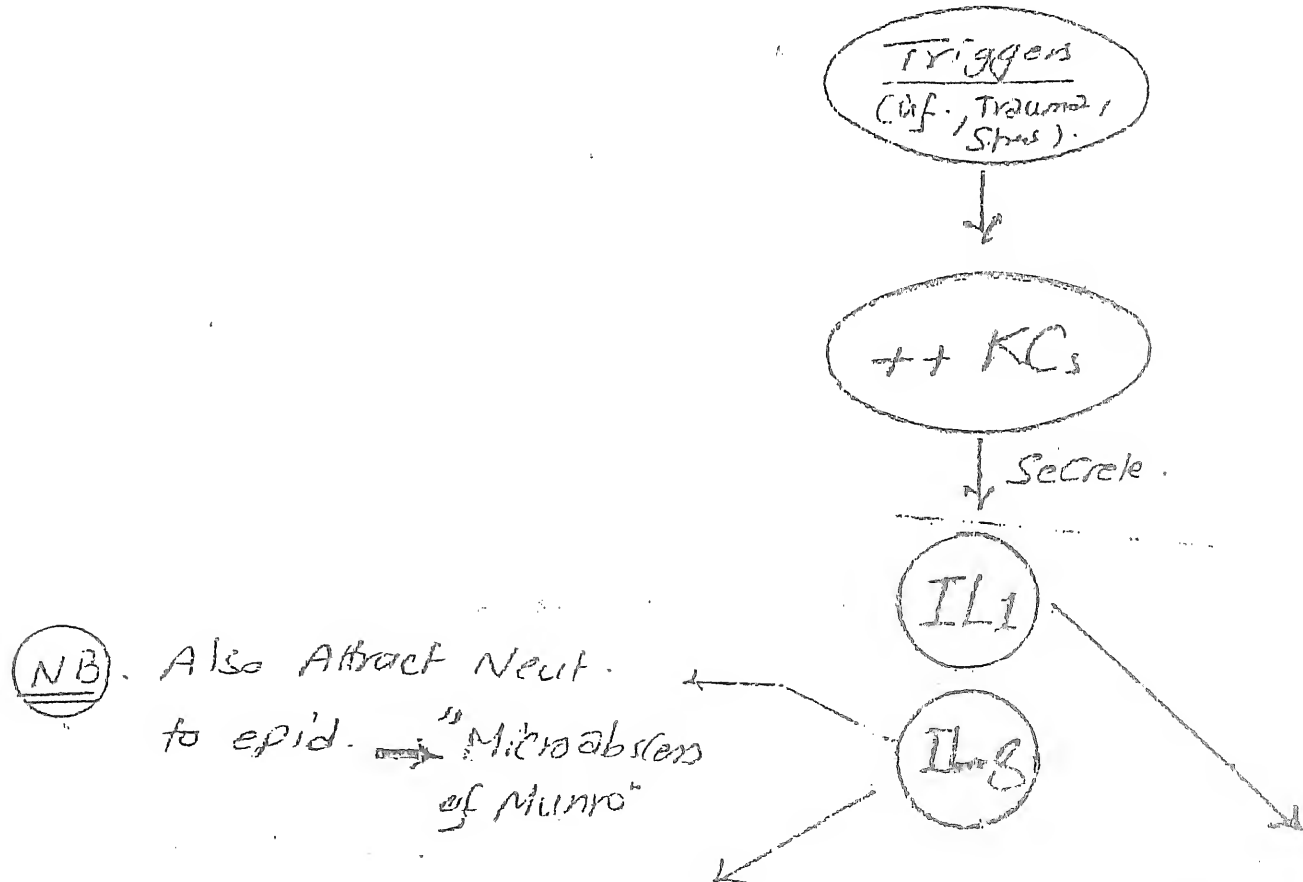 Triggers
(inf., Trauma,
Stress).
++ KCs
Secrete.
IL1
IL8
NB. Also Attract Neut.
to epid. → "Microabscess
of Munro"